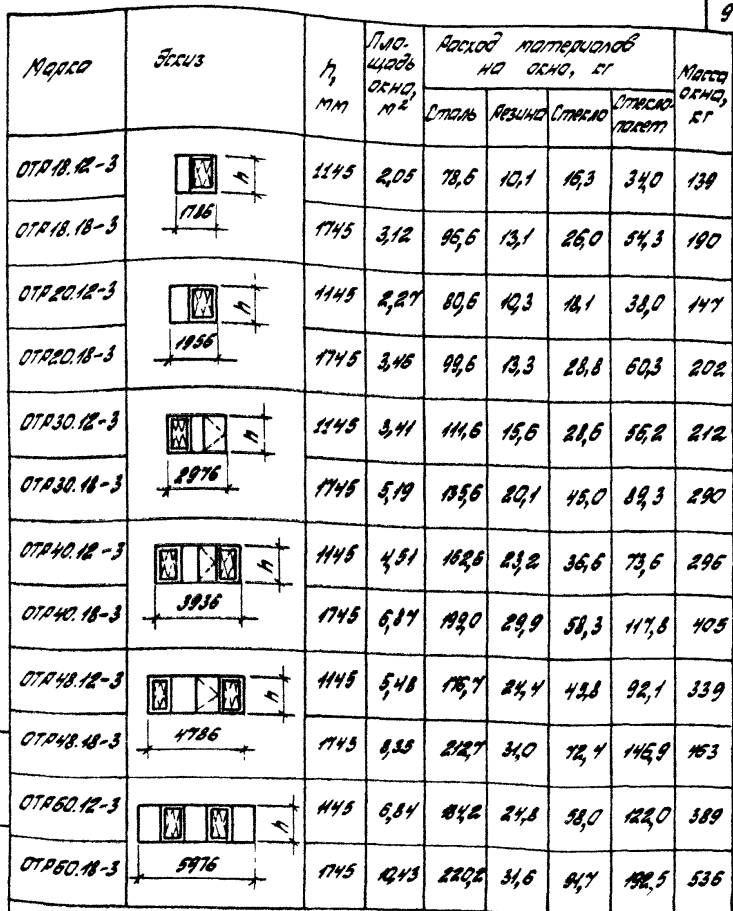 9
Марка Эскиз h, мм Пло-щадь окна, м² Расход материалов на окно, кг Масса окна, кг
Сталь Резина Стекло Стекло-пакет
ОТР18.12-3 h 1145 2,05 78,6 10,1 16,3 34,0 139
1786
ОТР18.18-3 1745 3,12 96,6 13,1 26,0 54,3 190
ОТР20.12-3 h 1145 2,27 80,6 10,3 18,1 38,0 147
1956
ОТР20.18-3 1745 3,46 99,6 13,3 28,8 60,3 202
ОТР30.12-3 h 1145 3,41 111,6 15,6 28,6 56,2 212
2976
ОТР30.18-3 1745 5,19 135,6 20,1 45,0 89,3 290
ОТР40.12-3 h 1145 4,51 162,6 23,2 36,6 73,6 296
3936
ОТР40.18-3 1745 6,87 199,0 29,9 58,3 117,8 405
ОТР48.12-3 h 1145 5,48 176,7 24,4 45,8 92,1 339
4786
ОТР48.18-3 1745 8,35 212,7 31,0 72,4 146,9 463
ОТР60.12-3 h 1145 6,84 184,2 24,8 58,0 122,0 389
5976
ОТР60.18-3 1745 10,43 220,2 31,6 91,7 192,5 536